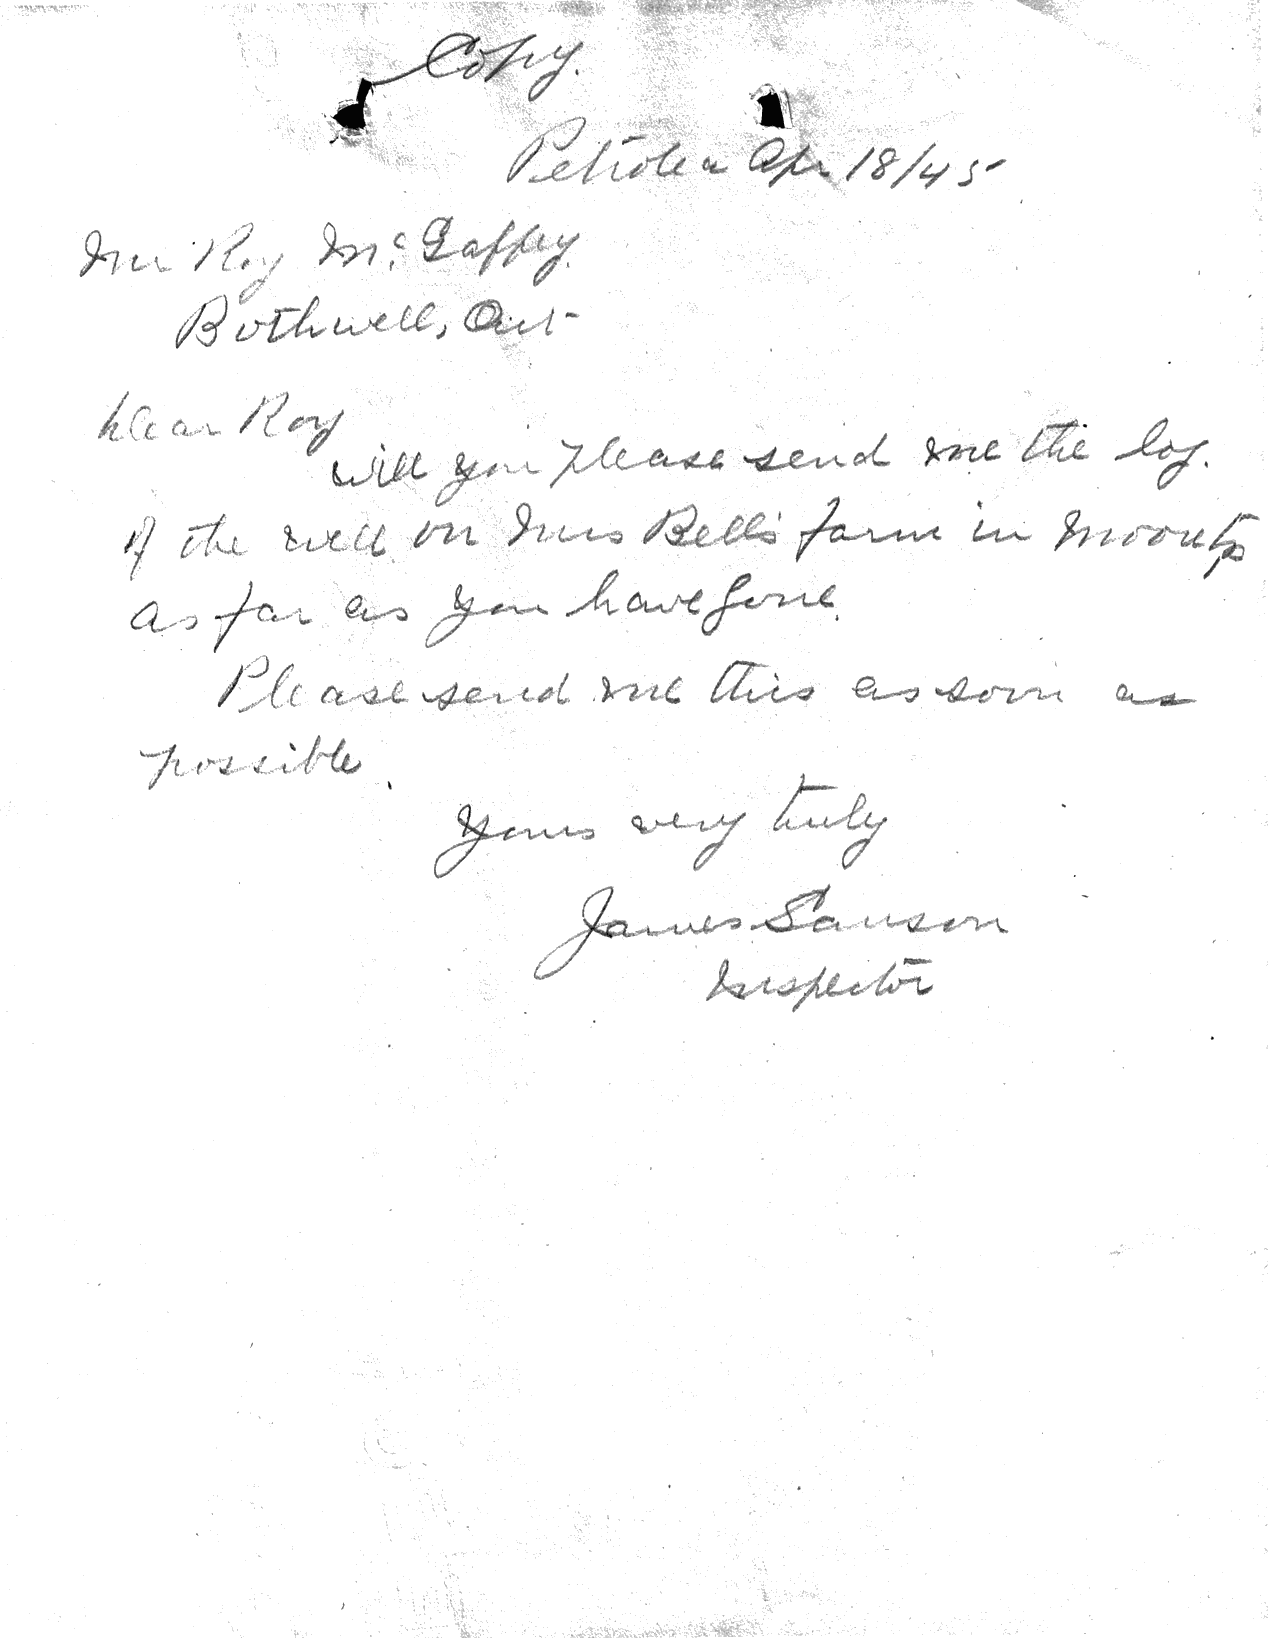 Copy.
Petrolea Apr 18/45
Mr Roy McGaffey.
Bothwell, Ont
Dear Roy
will you please send me the log.
of the well on Mrs Bell's farm in Moore tp
as far as you have gone.
Please send me this as soon as
possible.
Yours very truly
James Sanson
Inspector